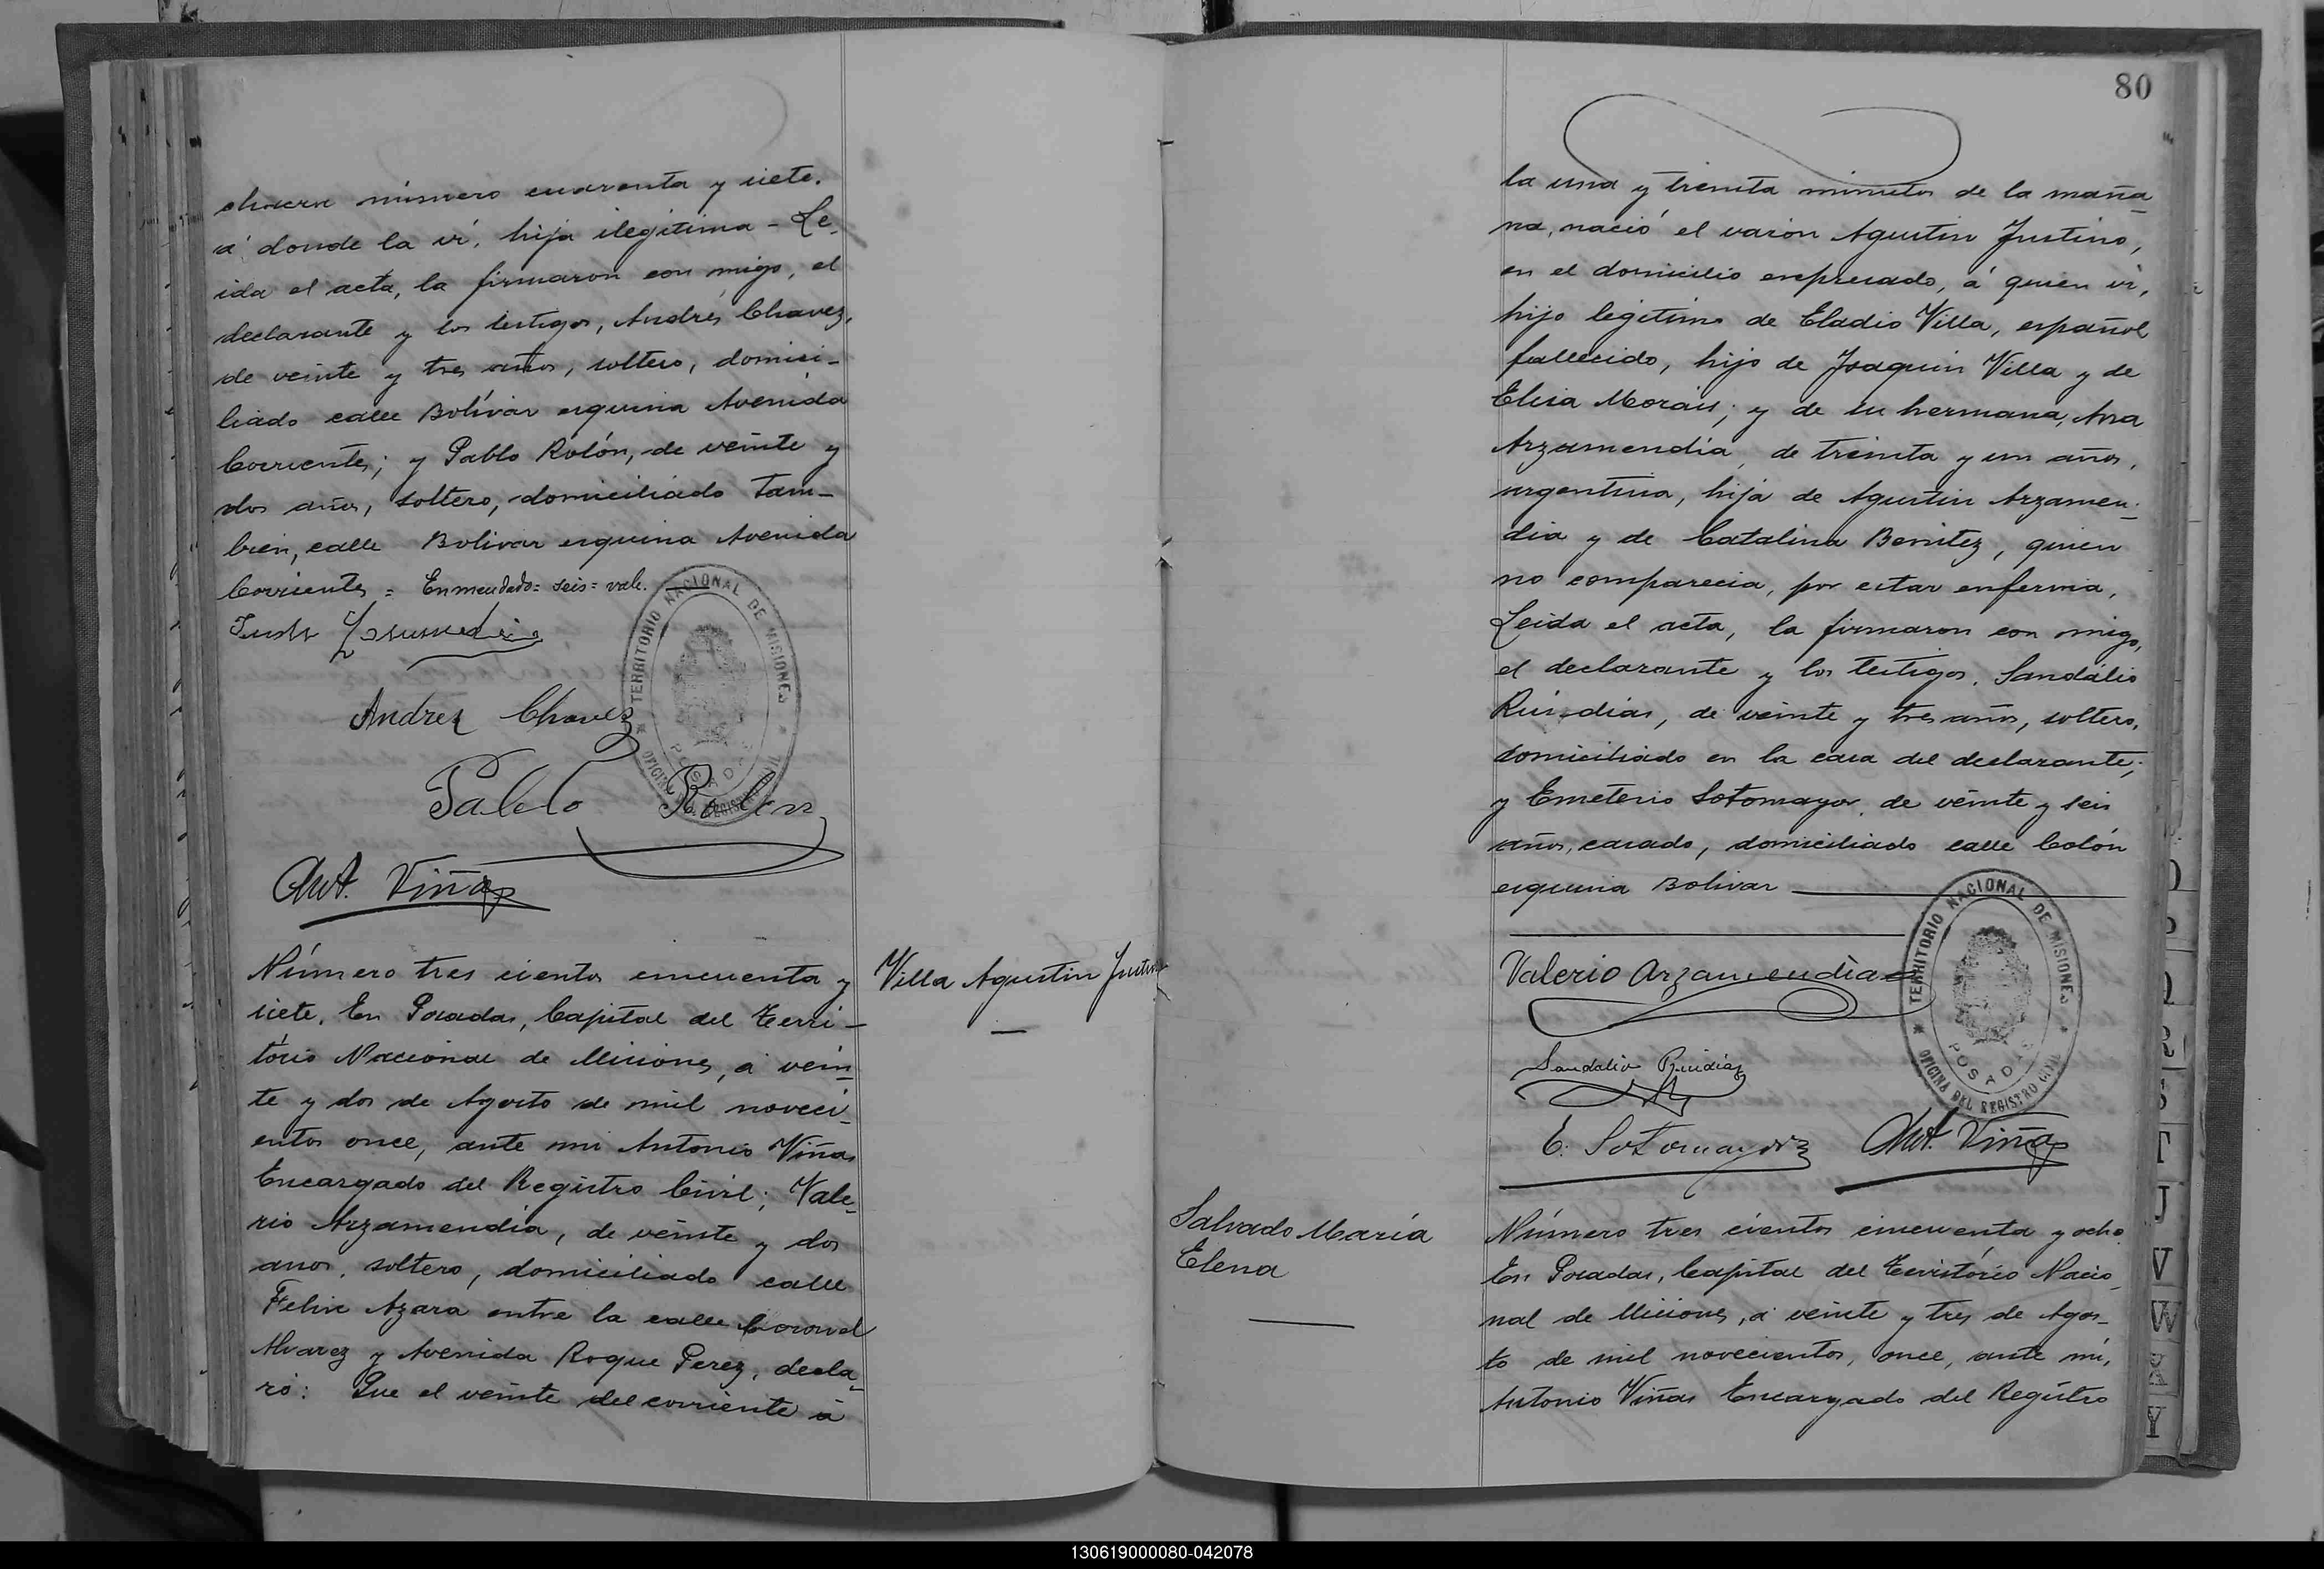 chacra número cuarenta y siete.
á donde la vi, hija ilegitima - Le-
ida el acta, la firmaron con migo, el
declarante y los testigos, Andrés Chavez,
de veinte y tres años, soltero, domici-
liado calle Bolívar esquina Avenida
Corrientes; y Pablo Rolón, de veinte y
dos años, soltero, domiciliado tam-
bien, calle Bolivar esquina Avenida
Corrientes = Enmendado = seis = vale.
Andres Chavez
Pablo Rolon
Ant. Viñas
TERRITORIO NACIONAL DE MISIONES
POSADAS
OFICINA DEL REGISTRO CIVIL
Villa Agustin Justino
Número tres cientos cincuenta y
siete. En Posadas, Capital del Terri-
tório Nacional de Misiones, á vein-
te y dos de Agosto de mil noveci-
entos once, ante mi Antonio Viñas
Encargado del Registro Civil; Vale-
rio Arzamendia, de veinte y dos
anos, soltero, domiciliado calle
Felix Azara entre la calle Coronel
Alvarez y Avenida Roque Perez, decla-
ró: Que el veinte del corriente á
80
la una y treinta minutos de la maña-
na, nació el varón Agustin Justino,
en el domicilio expresado, á quien vi,
hijo legitimo de Eladio Villa, español
fallecido, hijo de Joaquin Villa y de
Elisa Morais; y de su hermana, Ana
Arzamendia, de treinta y un años,
argentina, hija de Agustin Arzamen-
dia y de Catalina Benitez, quien
no comparecia, por estar enferma,
Leida el acta, la firmaron con migo,
el declarante y los testigos, Sandálio
Rui-dias, de veinte y tres años, soltero,
domiciliado en la casa del declarante;
y Emeterio Sotomayor, de veinte y seis
años, casado, domiciliado calle Colón
esquina Bolivar
Valerio Arzamendia
Sandalio Ruidiaz
E. Sotomayor
Ant. Viñas
TERRITORIO NACIONAL DE MISIONES
POSADAS
OFICINA DEL REGISTRO CIVIL
Salvado María
Elena
Número tres cientos cincuenta y ocho
En Posadas, Capital del Território Nacio-
nal de Misiones, á veinte y tres de Agos-
to de mil novecientos, once, ante mi,
Antonio Viñas Encargado del Registro
T
J
V
W
X
Y
130619000080-042078